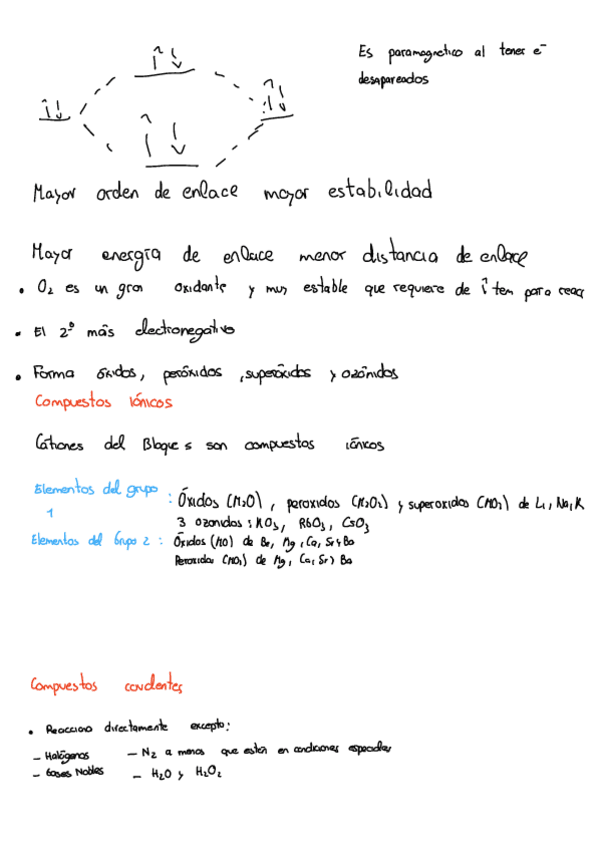 Es paramagnetico al tener e⁻
desapareados
Mayor orden de enlace mayor estabilidad
Mayor energía de enlace menor distancia de enlace
• O₂ es un gran oxidante y muy estable que requiere de ↑ tem para reacc
• El 2º más electronegativo
• Forma óxidos, peróxidos, superóxidos y ozónidos
Compuestos iónicos
Cationes del Bloque s son compuestos iónicos
Elementos del grupo 1 : Óxidos (M₂O), peroxidos (M₂O₂) y superoxidos (MO₂) de Li, Na, K
3 ozonidos : KO₃, RbO₃, CsO₃
Elementos del Grupo 2 : Óxidos (MO) de Be, Mg, Ca, Sr y Ba
Peroxidos (MO₂) de Mg, Ca, Sr y Ba
Compuestos covalentes
• Reacciona directamente excepto:
– Halógenos – N₂ a menos que esten en condiciones especiales
– Gases Nobles – H₂O y H₂O₂